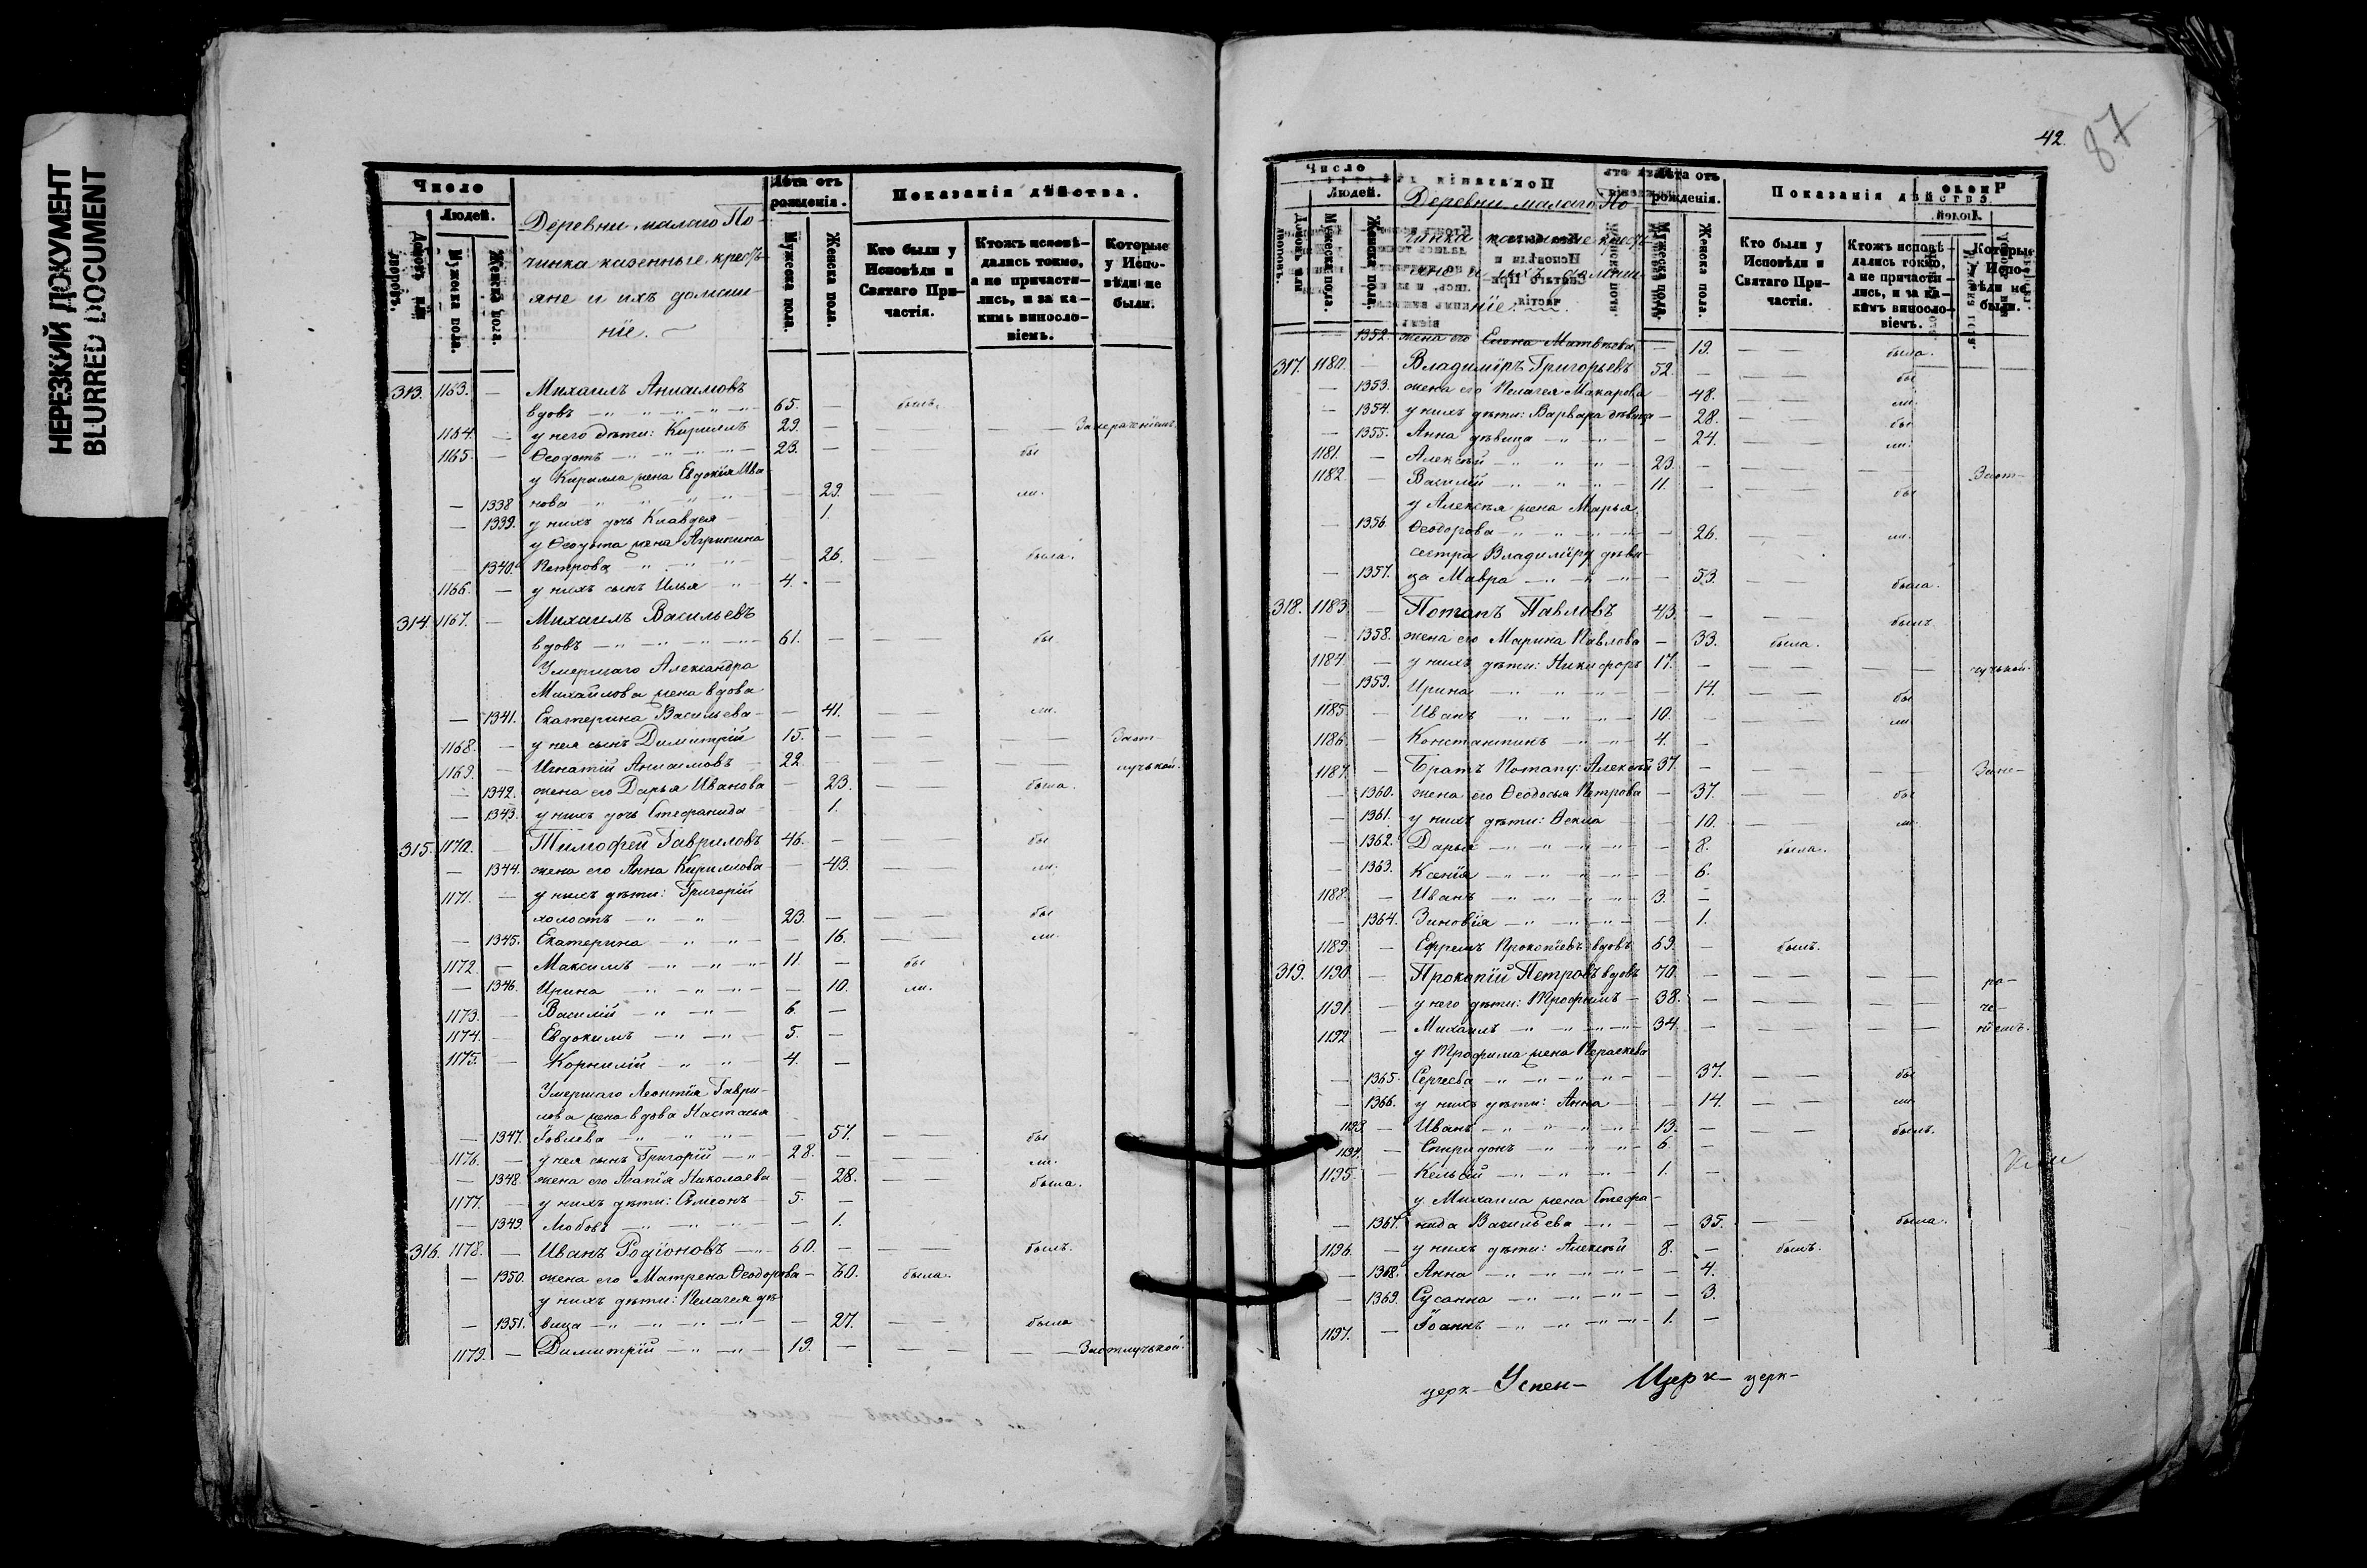 НЕРЕЗКИЙ ДОКУМЕНТ
BLURRED DOCUMENT
Число
Людей.
Домовъ или дворовъ.
Мужеска пола.
Женска пола.
Деревни малаго По-
чинка казенные кресть-
яне и ихъ домаш-
ніе.
Лѣта отъ рожденія.
Мужеска пола.
Женска пола.
Показанія дѣйства.
Кто были у Исповѣди и Святаго При-частія.
Ктожъ исповѣ-дались токмо, а не причасти-лись, и за ка-кимъ винословіемъ.
Которые у Испо-вѣди не были.
313. 1163. — Михаилъ Анисимовъ
вдовъ 65. — былъ.
1164. — у него дѣти: Кириллъ 29. —
1165. — Ѳеодотъ 23. — бы
у Кирилла жена Евдокія Ива-
— 1338 нова — 29. ли.
— 1339. у нихъ дочь Клавдея 1.
у Ѳеодота жена Агрипина
— 1340. Петрова — 26. была.
1166. — у нихъ сынъ Илья 4. —
314. 1167. — Михаилъ Васильевъ
вдовъ 61. — бы
Умершаго Александра
Михайлова жена вдова
— 1341. Екатерина Васильева — 41. ли.
1168. — у нея сынъ Димитрій 15. — Заот-
1169. — Игнатій Анисимовъ 22. — лучкой.
— 1342. жена его Дарья Иванова — 23. была.
— 1343. у нихъ дочь Стефанида 1.
315. 1170. — Тимофей Гавриловъ 46. — бы
— 1344. жена его Анна Кириллова — 43. ли.
1171. — у нихъ дѣти: Григорій
холостъ 23. — бы
— 1345. Екатерина — 16. ли.
1172. — Максимъ 11. — бы
— 1346. Ирина — 10. ли.
1173. — Василій 6. —
1174. — Евдокимъ 5. —
1175. — Корнилій 4. —
Умершаго Леонтія Гаври-
лова жена вдова Настасья
— 1347. Іовлева — 57. бы
1176. — у нея сынъ Григорій 28. — ли.
— 1348. жена его Агапія Николаева — 28. была.
1177. — у нихъ дѣти: Симеонъ 5. —
— 1349. Любовь — 1.
316. 1178. — Иванъ Родіоновъ 60. — былъ.
— 1350. жена его Матрена Ѳеодорова — 60. была.
у нихъ дѣти: Пелагея дѣ-
— 1351. вица — 27. была
1179. — Димитрій 19. — Заотлучкой.
42.
87
Число
Людей.
Домовъ или дворовъ.
Мужеска пола.
Женска пола.
Деревни малаго По-
чинка казенные кресть-
яне и ихъ домаш-
ніе.
Лѣта отъ рожденія.
Мужеска пола.
Женска пола.
Показанія дѣйства.
Кто были у Исповѣди и Святаго При-частія.
Ктожъ исповѣ-дались токмо, а не причасти-лись, и за ка-кимъ винословіемъ.
Которые у Испо-вѣди не были.
— 1352. жена его Елена Матвѣева — 19. была.
317. 1180. — Владиміръ Григорьевъ 52. — бы
— 1353. жена его Пелагея Макарова 48. ли.
— 1354. у нихъ дѣти: Варвара дѣвица — 28. бы
— 1355. Анна дѣвица — 24. ли.
1181. — Алексѣй 23. — Заот-
1182. — Василій 11. — бы
у Алексѣя жена Марья
— 1356. Ѳеодорова — 26. ли.
сестра Владиміру дѣви-
— 1357. ца Мавра — 53. была.
318. 1183. — Потапъ Павловъ 43. — былъ
— 1358. жена его Марина Павлова — 33. была.
1184. — у нихъ дѣти: Никифоръ 17. — лучкой.
— 1359. Ирина — 14. бы
1185. — Иванъ 10. — ли
1186. — Константинъ 4. —
1187. — Братъ Потапу: Алексѣй 37. — Зане-
— 1360. жена его Ѳеодосья Петрова — 37. бы
— 1361. у нихъ дѣти: Ѳекла — 10. ли.
— 1362. Дарья — 8. была.
— 1363. Ксенія — 6.
1188. — Иванъ 3. —
— 1364. Зиновія — 1.
1189. — Ефремъ Прокопіевъ вдовъ 69. — былъ.
319. 1190. — Прокопій Петровъ вдовъ 70. —
1191. — у него дѣти: Трофимъ 38. —
1192 — Михаилъ 34. — ніемъ.
у Трофима жена Параскева
— 1365. Сергеева — 37. бы
— 1366. у нихъ дѣти: Анна — 14. ли
1193 — Иванъ 13. — былъ.
1194. — Спиридонъ 6. —
1195. — Кельсій 1. —
у Михаила жена Стефа-
— 1367. нида Васильева — 35. была.
1196. — у нихъ дѣти: Алексѣй 8. — былъ.
— 1368. Анна — 4.
— 1369. Сусанна — 3.
1197. — Іоаннъ 1. —
церк- Успен- Церк- церк-